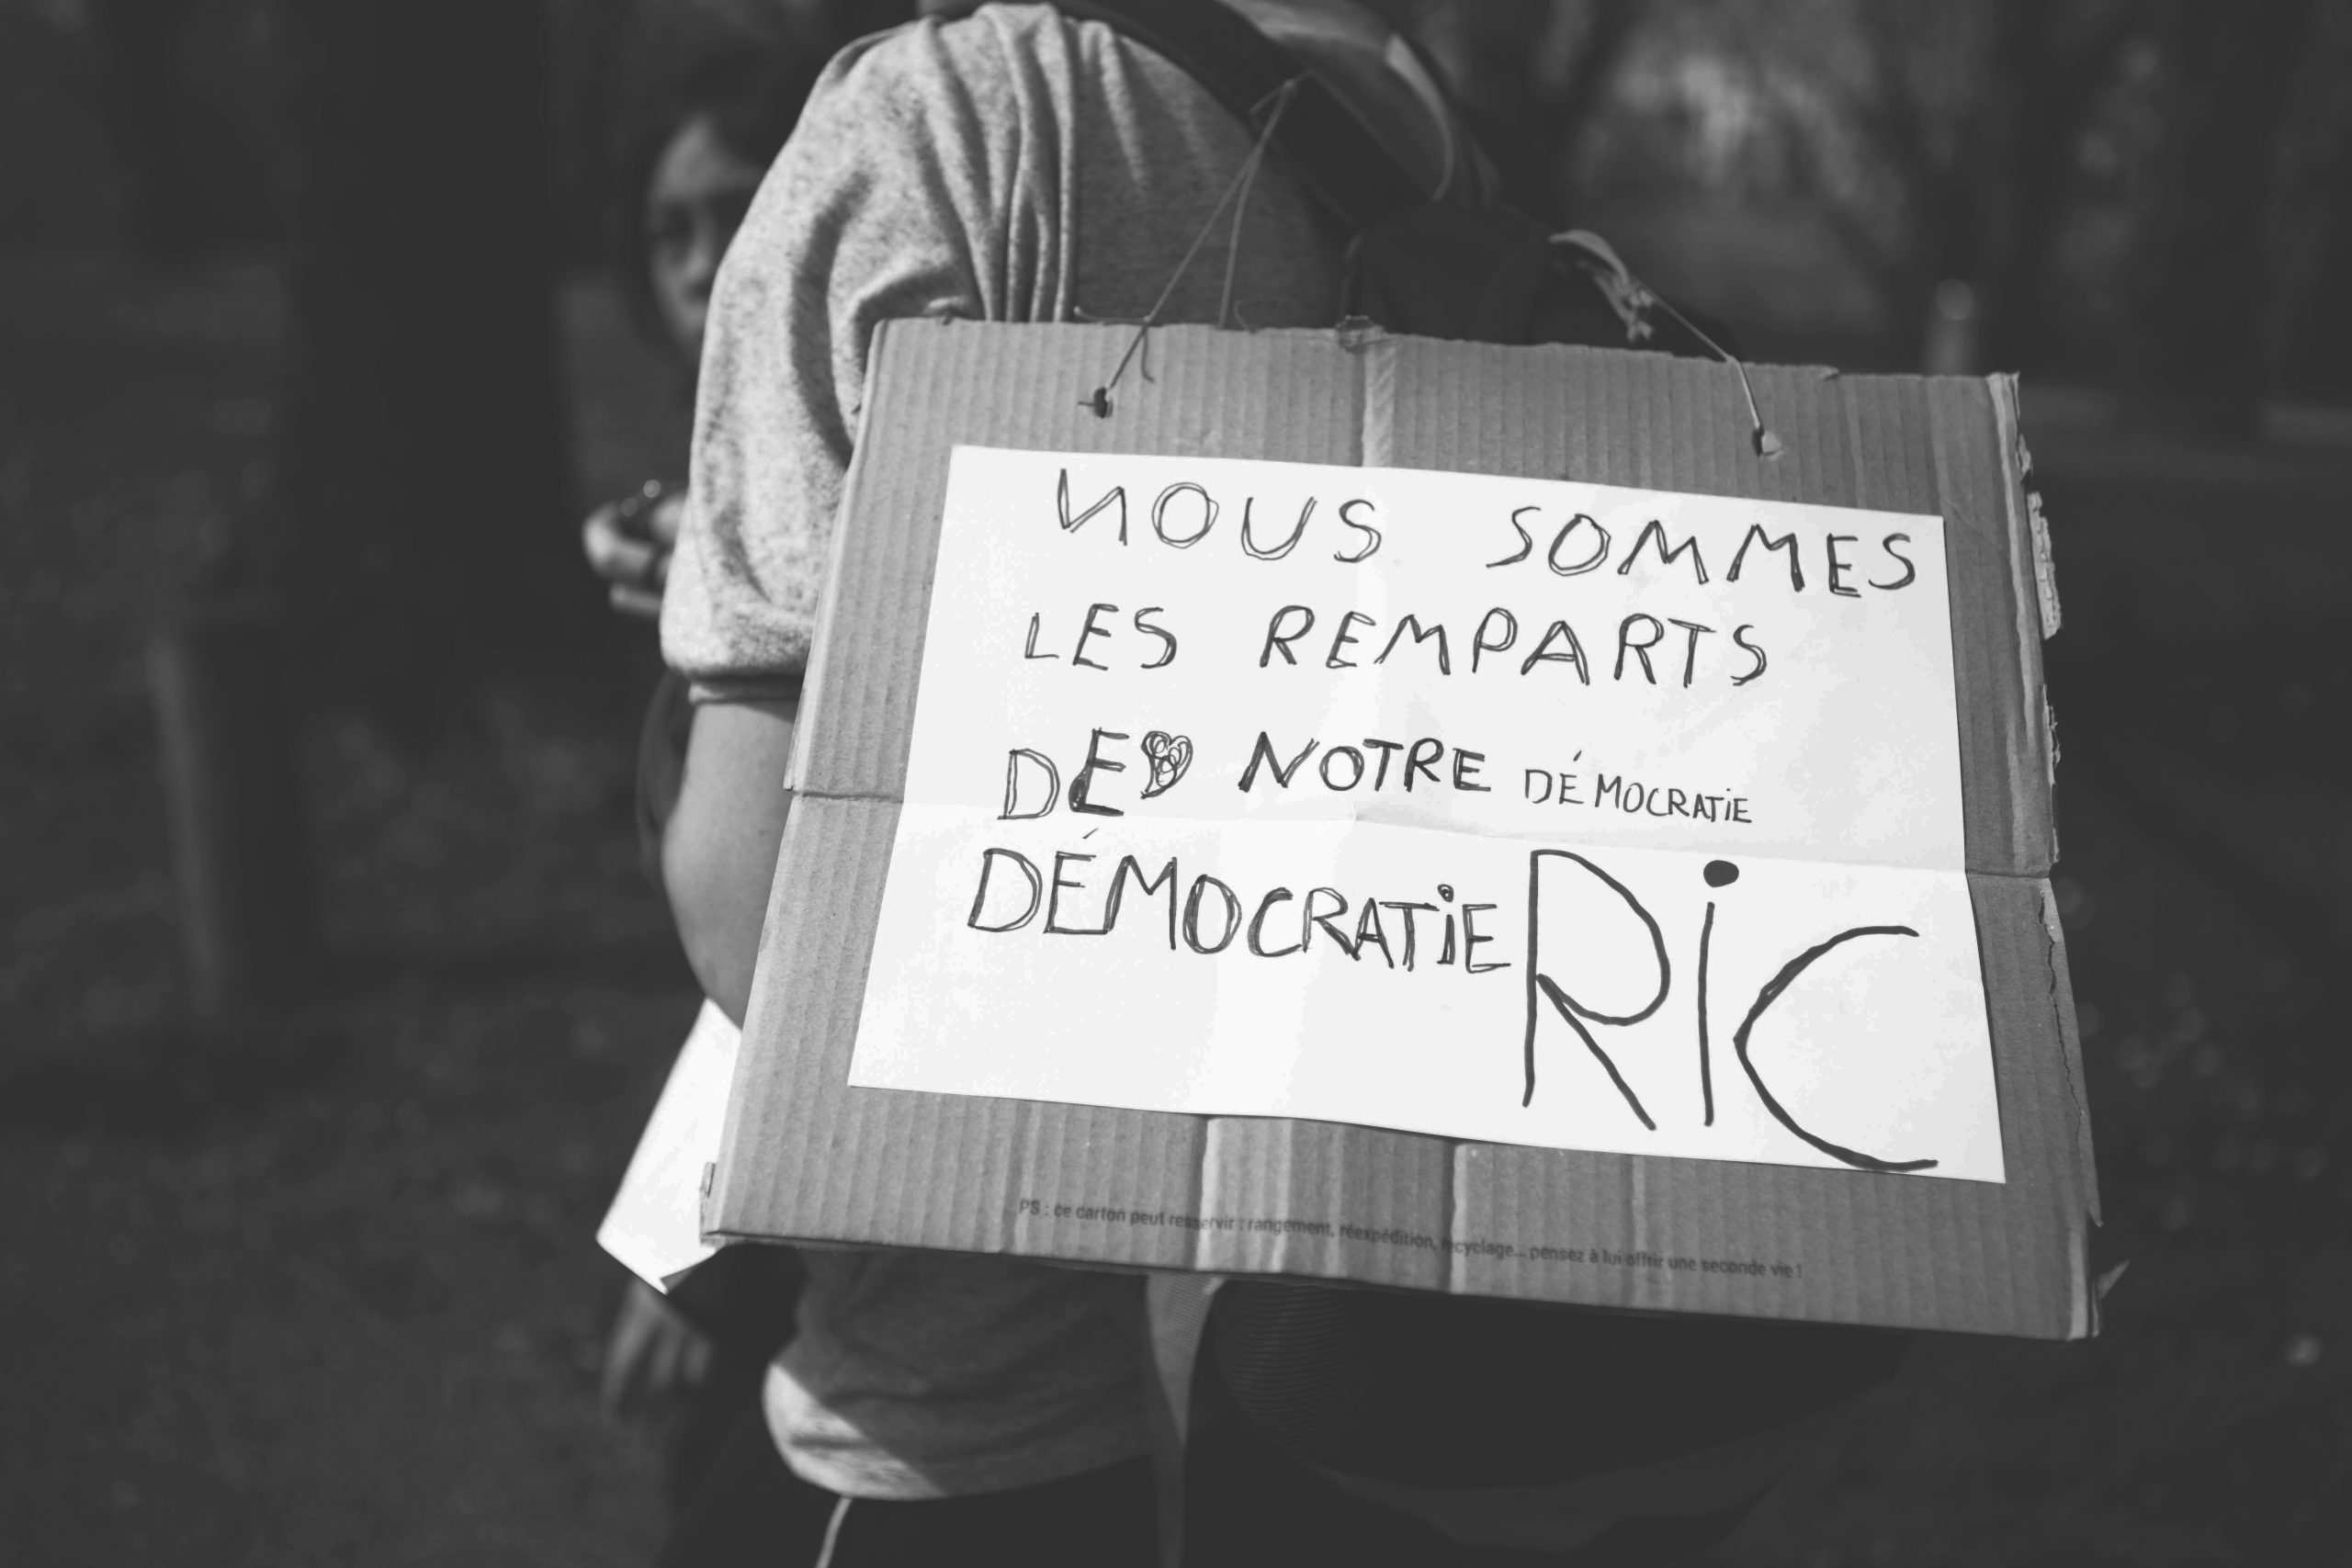 NOUS SOMMES
LES REMPARTS
DE NOTRE DÉMOCRATIE
DÉMOCRATIE RiC
PS : ce carton peut resservir : rangement, réexpédition, recyclage... pensez à lui offrir une seconde vie !